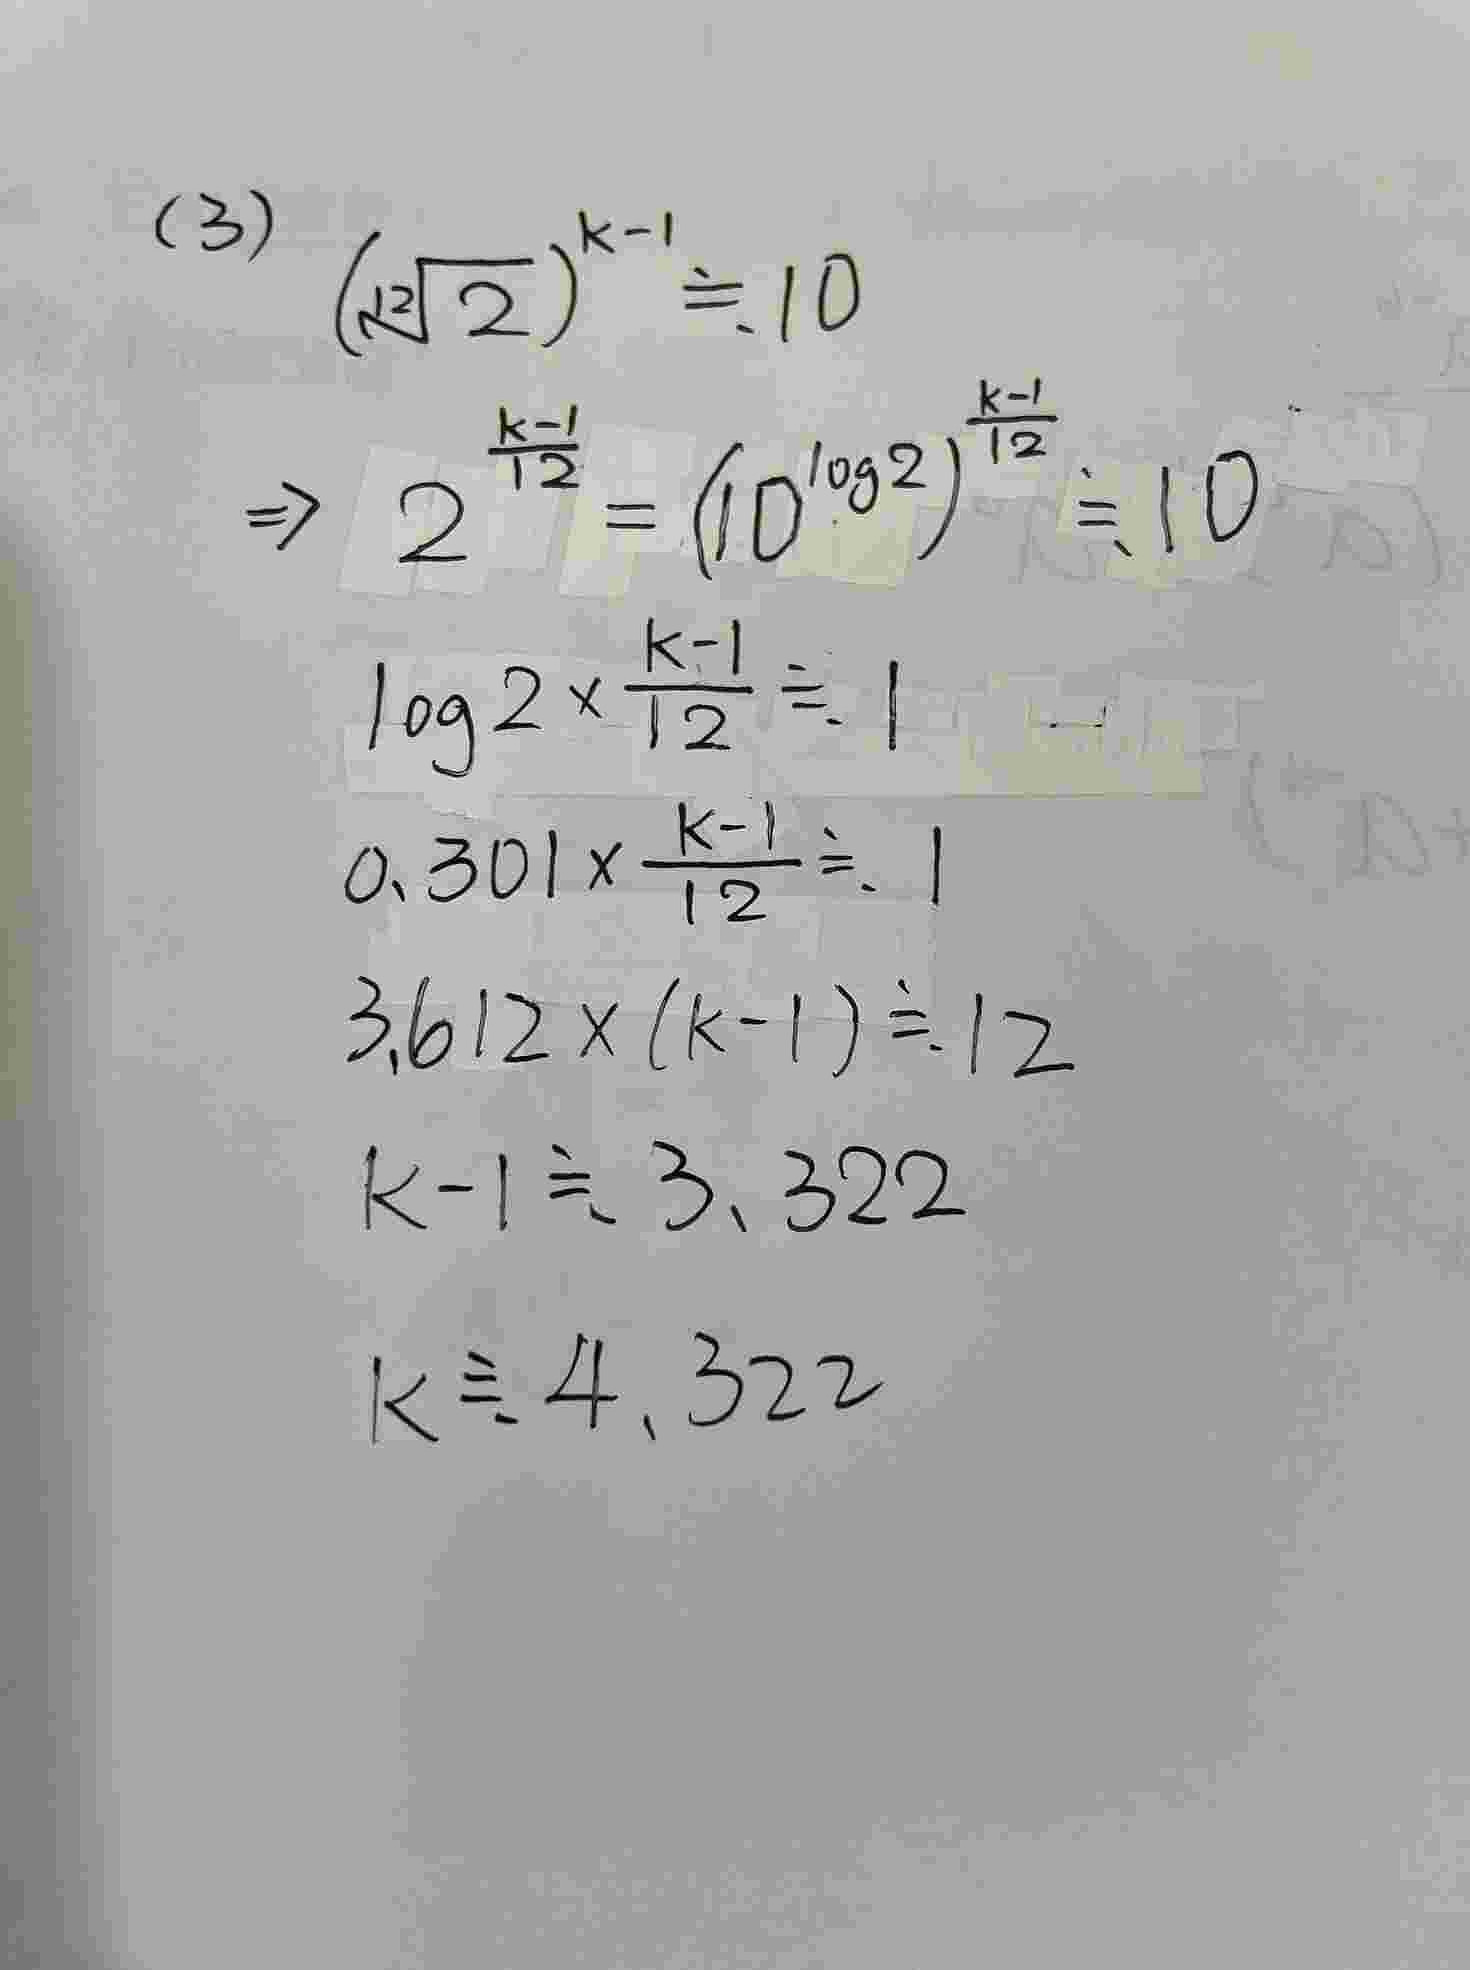 (3) (¹²√2)^(k-1) ≒ 10
⇒ 2^((k-1)/12) = (10^(log2))^((k-1)/12) ≒ 10
log2 × (k-1)/12 ≒ 1
0.301 × (k-1)/12 ≒ 1
3.612 × (k-1) ≒ 12
k-1 ≒ 3.322
k ≒ 4.322